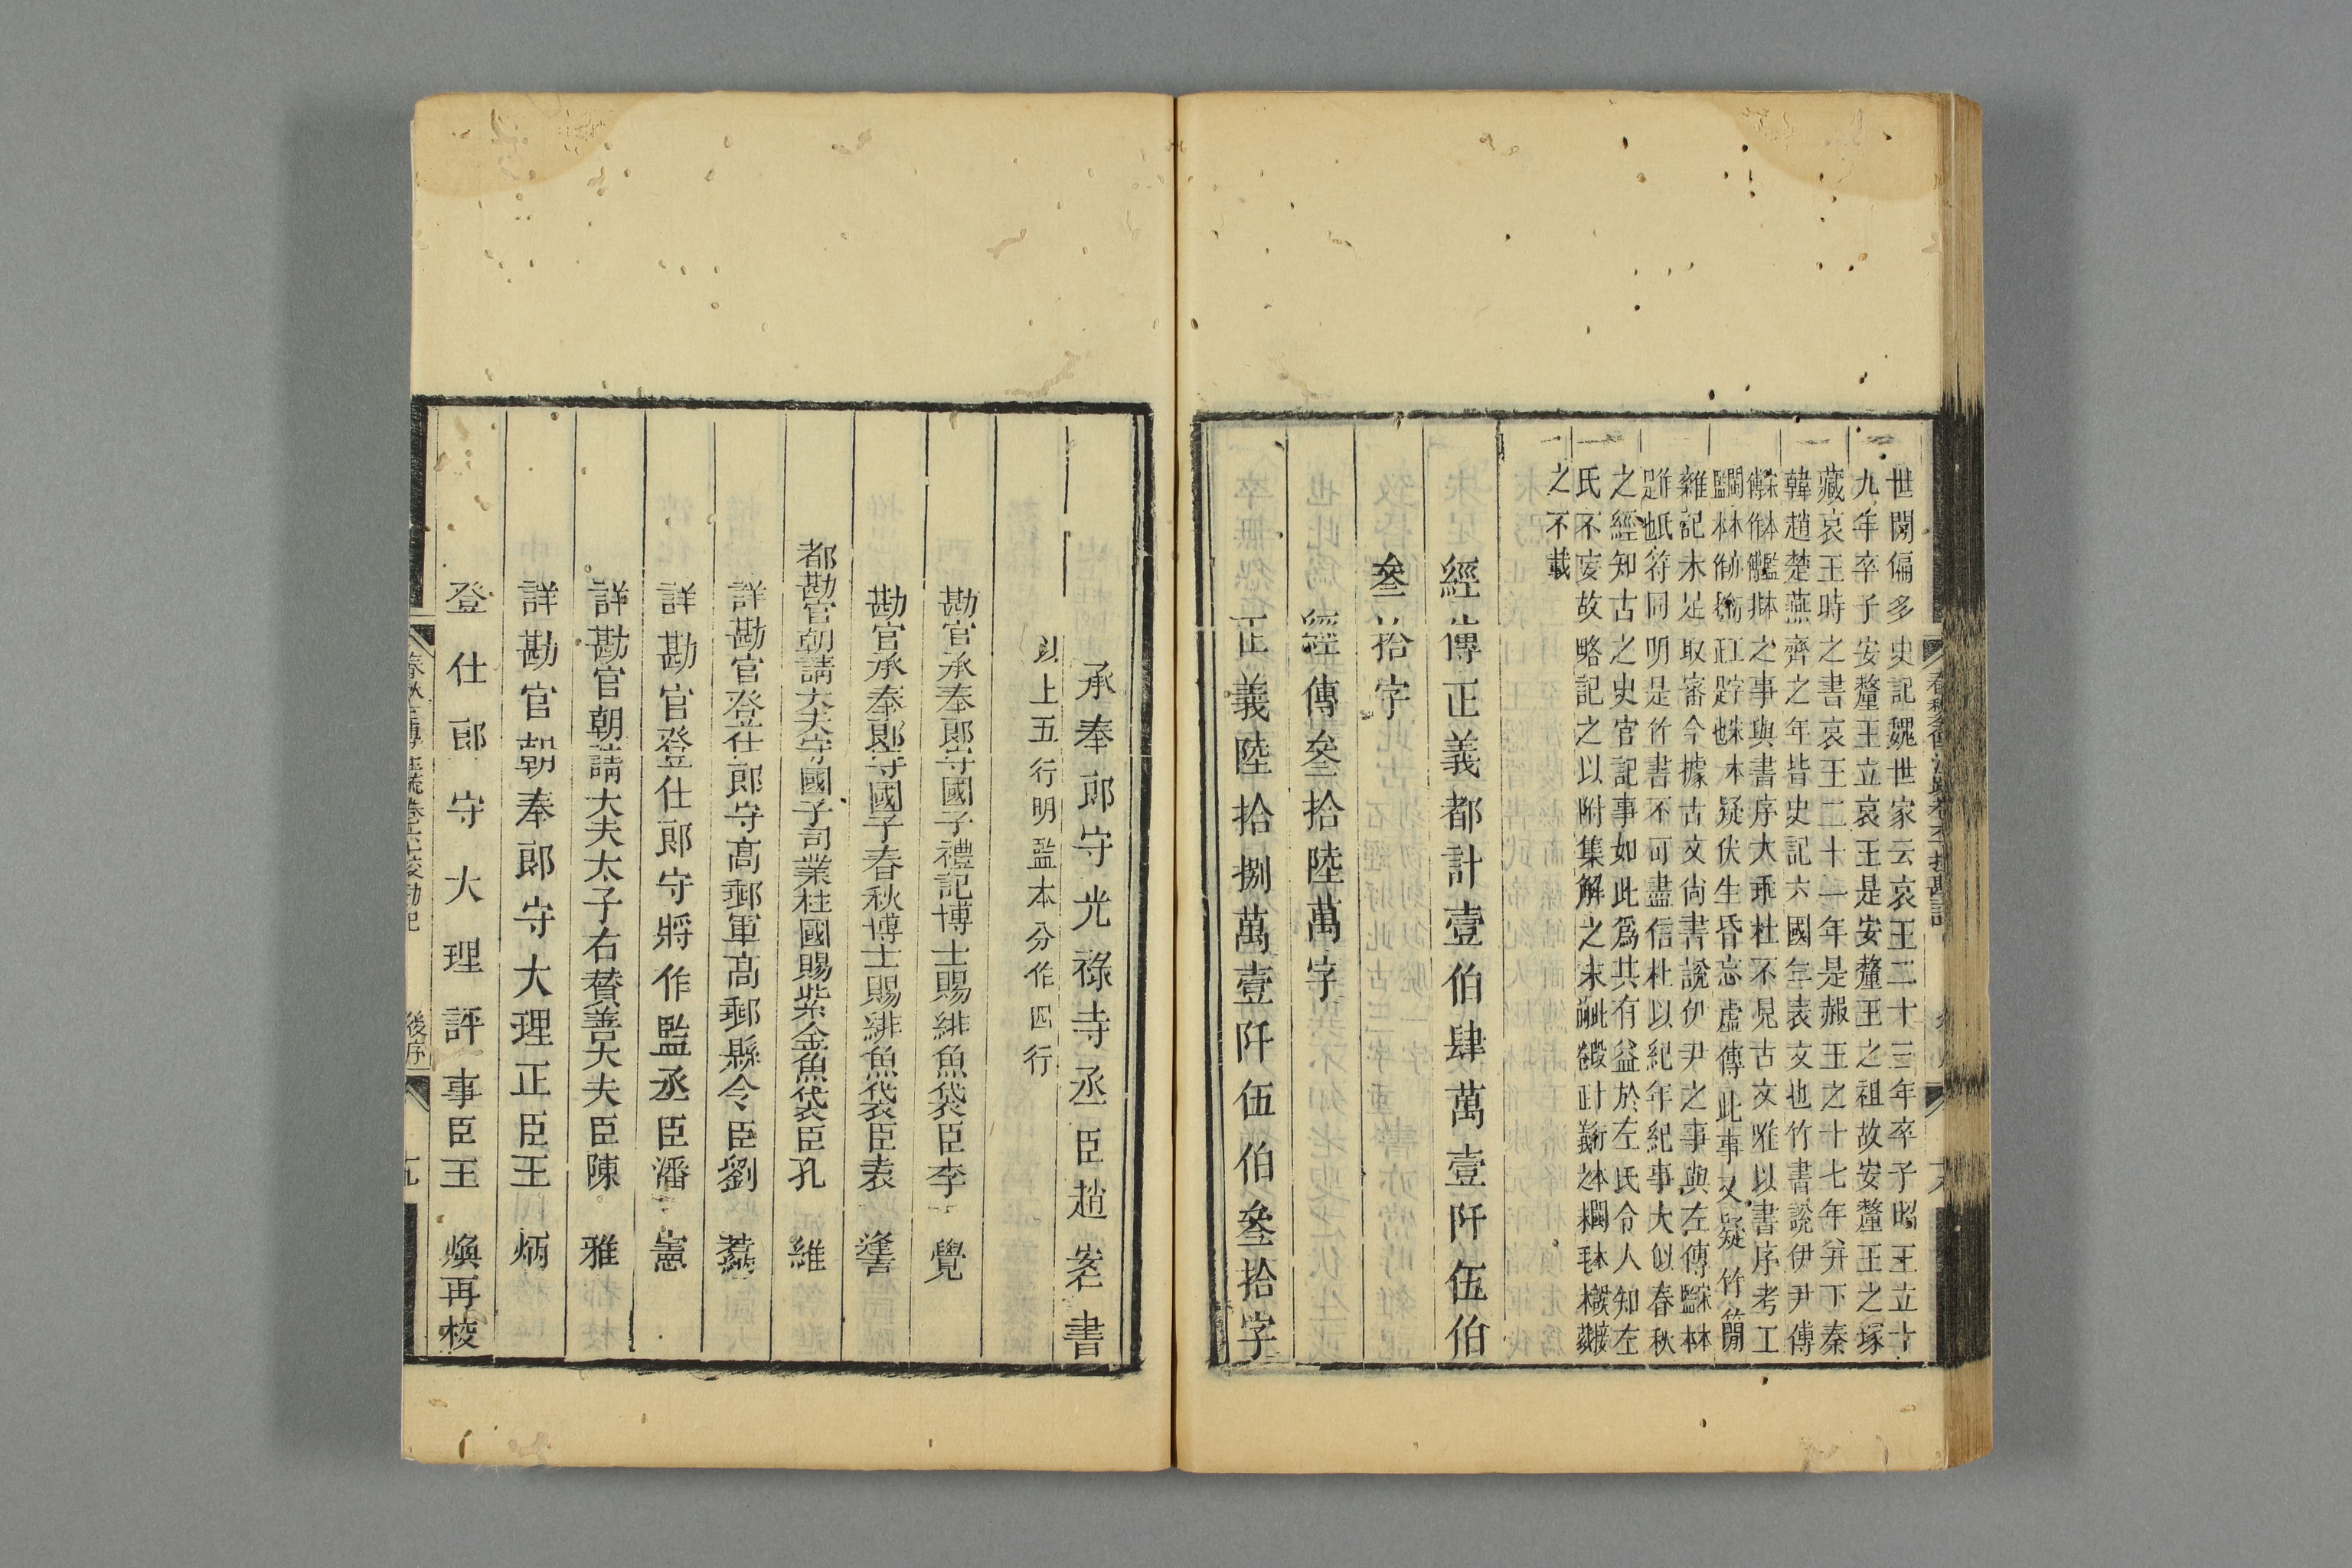 世閒偏多史記魏世家云哀王二十三年卒子昭王立十
九年卒子安釐王立哀王是安釐王之祖故安釐王之塚
藏哀王時之書哀王二十一年是赧王之十七年并下秦
韓趙楚燕齊之年皆史記六國年表文也竹書說伊尹傳
之事與書序大乖杜不見古文雅以書序考工
疑伏生昏忘虛傳此事又疑竹簡
雜記未足取審今據古文尚書說伊尹之事與左傳
符同明是竹書不可盡信杜以紀年紀事大似春秋
之經知古之史官記事如此爲其有益於左氏令人知左
氏不妄故略記之以附集解之末
之不載
經傳正義都計壹伯肆萬壹阡伍伯
叁拾字
經傳叁拾陸萬字
正義陸拾捌萬壹阡伍伯叁拾字
承奉郎守光祿寺丞臣趙安仁書
以上五行明監本分作四行
勘官承奉郎守國子禮記博士賜緋魚袋臣李覺
勘官承奉郎守國子春秋博士賜緋魚袋臣袁逢吉
都勘官朝請大夫守國子司業柱國賜紫金魚袋臣孔維
詳勘官登仕郎守高郵軍高郵縣令臣劉
詳勘官登仕郎守將作監丞臣潘憲
詳勘官朝請大夫太子右贊善大夫臣陳雅
詳勘官朝奉郎守大理正臣王炳
登仕郎守大理評事臣王煥再校
後序